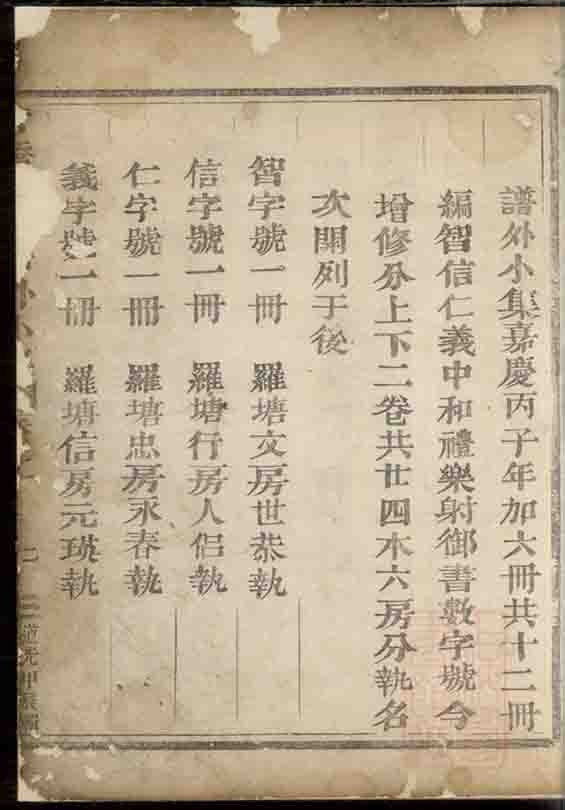 譜外小集嘉慶丙子年加六冊共十二冊
編智信仁義中和禮樂射御書數字號今
增修分上下二卷共廿四本六房分執名
次開列于後
智字號一冊 羅塘文房世恭執
信字號一冊 羅塘行房人侶執
仁字號一冊 羅塘忠房永春執
義字號一冊 羅塘信房元瑛執
道光甲辰